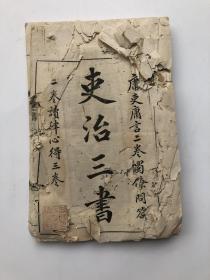 庸吏庸言二卷蜀僚問答
吏治三書
二卷讀律心得三卷